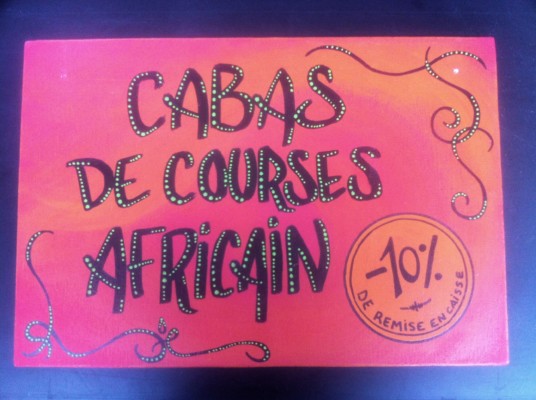 CABAS
DE COURSES
AFRICAIN
-10%
DE REMISE EN CAISSE